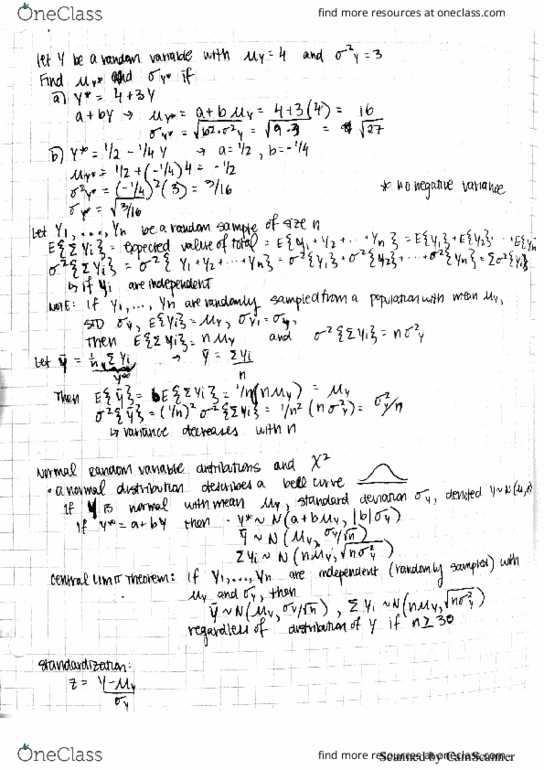 OneClass
find more resources at oneclass.com
let Y be a random variable with μY = 4 and σ²Y = 3
Find μY* and σY* if
a) Y* = 4 + 3Y
a + bY → μY* = a + b μY = 4 + 3(4) = 16
σY* = √b²·σ²Y = √9·3 = √27
b) Y* = 1/2 - 1/4 Y → a = 1/2, b = -1/4
μY* = 1/2 + (-1/4)4 = -1/2
σ²Y* = (-1/4)²(3) = 3/16 * no negative variance
σY* = √3/16
Let Y1, ..., Yn be a random sample of size n
E{ΣYi} = expected value of total = E{Y1 + Y2 + ... + Yn} = E{Y1} + E{Y2} ... E{Yn}
σ²{ΣYi} = σ²{Y1 + Y2 + ... + Yn} = σ²{Y1} + σ²{Y2} + ... + σ²{Yn} = Σσ²{Yi}
↳ if Yi are independent
NOTE: if Y1, ..., Yn are randomly sampled from a population with mean μY,
STD σY, E{Yi} = μY, σYi = σY,
Then E{ΣYi} = n μY and σ²{ΣYi} = nσ²Y
Let ȳ = 1/n ΣYi → ȳ = ΣYi/n
Y*
Then E{ȳ} = bE{ΣYi} = 1/n(nμY) = μY
σ²{ȳ} = (1/n)² σ²{ΣYi} = 1/n² (nσ²Y) = σ²Y/n
↳ variance decreases with n
Normal Random variable distributions and X²
• a normal distribution describes a bell curve
If Y is normal with mean μY, standard deviation σY, denoted Y~N(μ,σ)
if Y* = a + bY then · Y* ~ N(a + bμY, |b|σY)
ȳ ~ N(μY, σY/√n)
ΣYi ~ N(nμY, √nσ²Y)
Central Limit Theorem: if Y1, ..., Yn are independent (randomly sampled) with
μY and σY, then
ȳ ~ N(μY, σY/√n), ΣYi ~ N(nμY, √nσ²Y)
regardless of distribution of Y if n ≥ 30
Standardization:
z = Y - μY / σY
OneClass
find more resources at oneclass.com
Scanned by CamScanner